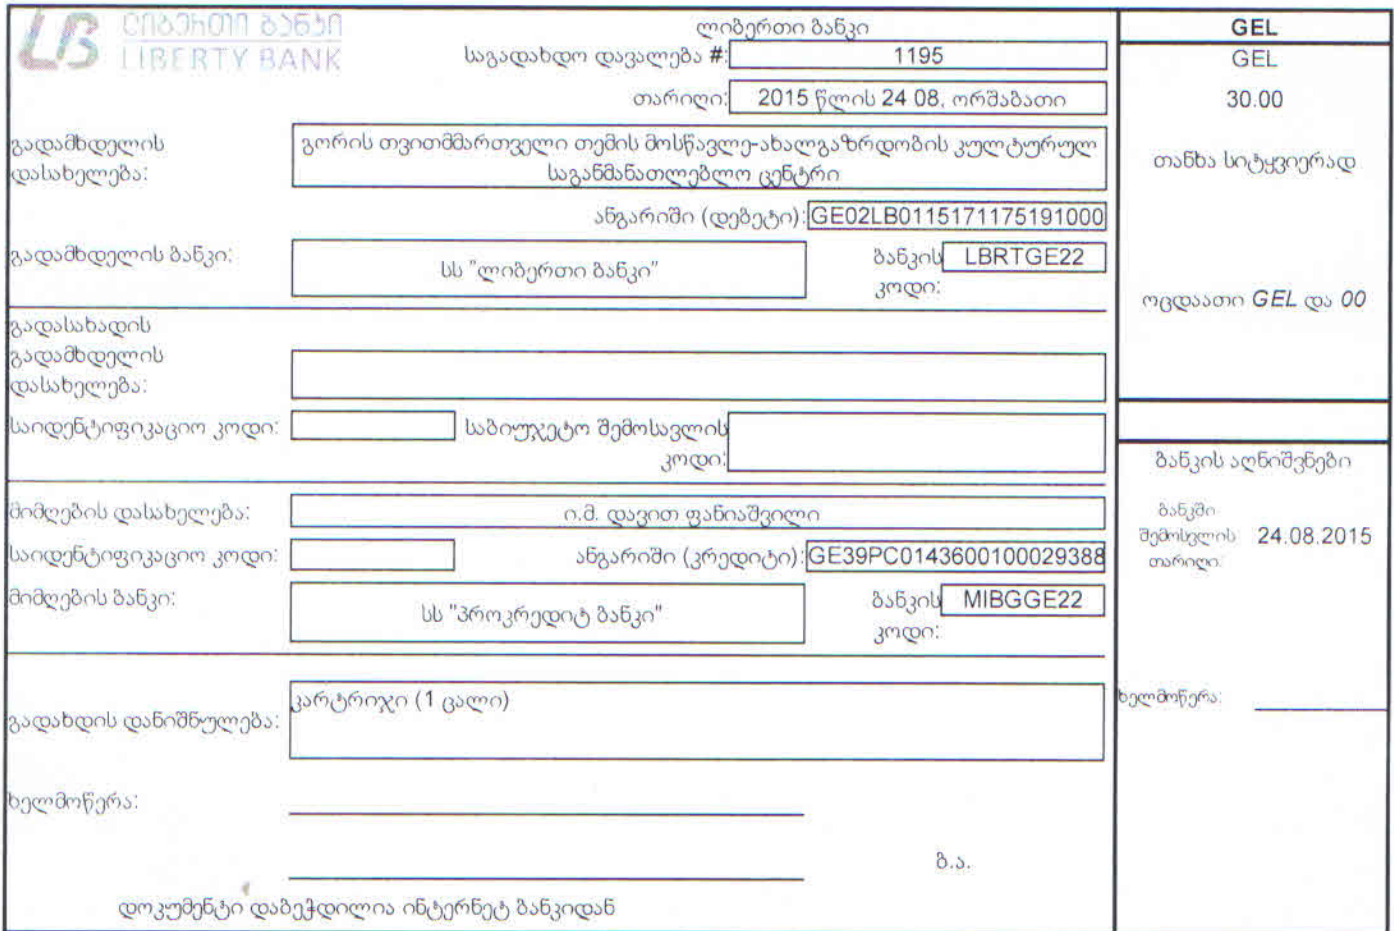 ლიბერთი ბანკი
LIBERTY BANK
ლიბერთი ბანკი
საგადახდო დავალება #: 1195
თარიღი: 2015 წლის 24 08, ორშაბათი
გადამხდელის დასახელება:
გორის თვითმმართველი თემის მოსწავლე-ახალგაზრდობის კულტურულ
საგანმანათლებლო ცენტრი
ანგარიში (დებეტი): GE02LB0115171175191000
გადამხდელის ბანკი: სს "ლიბერთი ბანკი" ბანკის კოდი: LBRTGE22
გადასახადის
გადამხდელის
დასახელება:
საიდენტიფიკაციო კოდი: საბიუჯეტო შემოსავლის
კოდი:
მიმღების დასახელება: ი.მ. დავით ფანიაშვილი
საიდენტიფიკაციო კოდი: ანგარიში (კრედიტი): GE39PC0143600100029388
მიმღების ბანკი: სს "პროკრედიტ ბანკი" ბანკის კოდი: MIBGGE22
კარტრიჯი (1 ცალი)
გადახდის დანიშნულება:
ხელმოწერა:
ბ.ა.
დოკუმენტი დაბეჭდილია ინტერნეტ ბანკიდან
GEL
GEL
30.00
თანხა სიტყვიერად
ოცდაათი GEL და 00
ბანკის აღნიშვნები
ბანკში
შემოსვლის 24.08.2015
თარიღი:
ხელმოწერა: